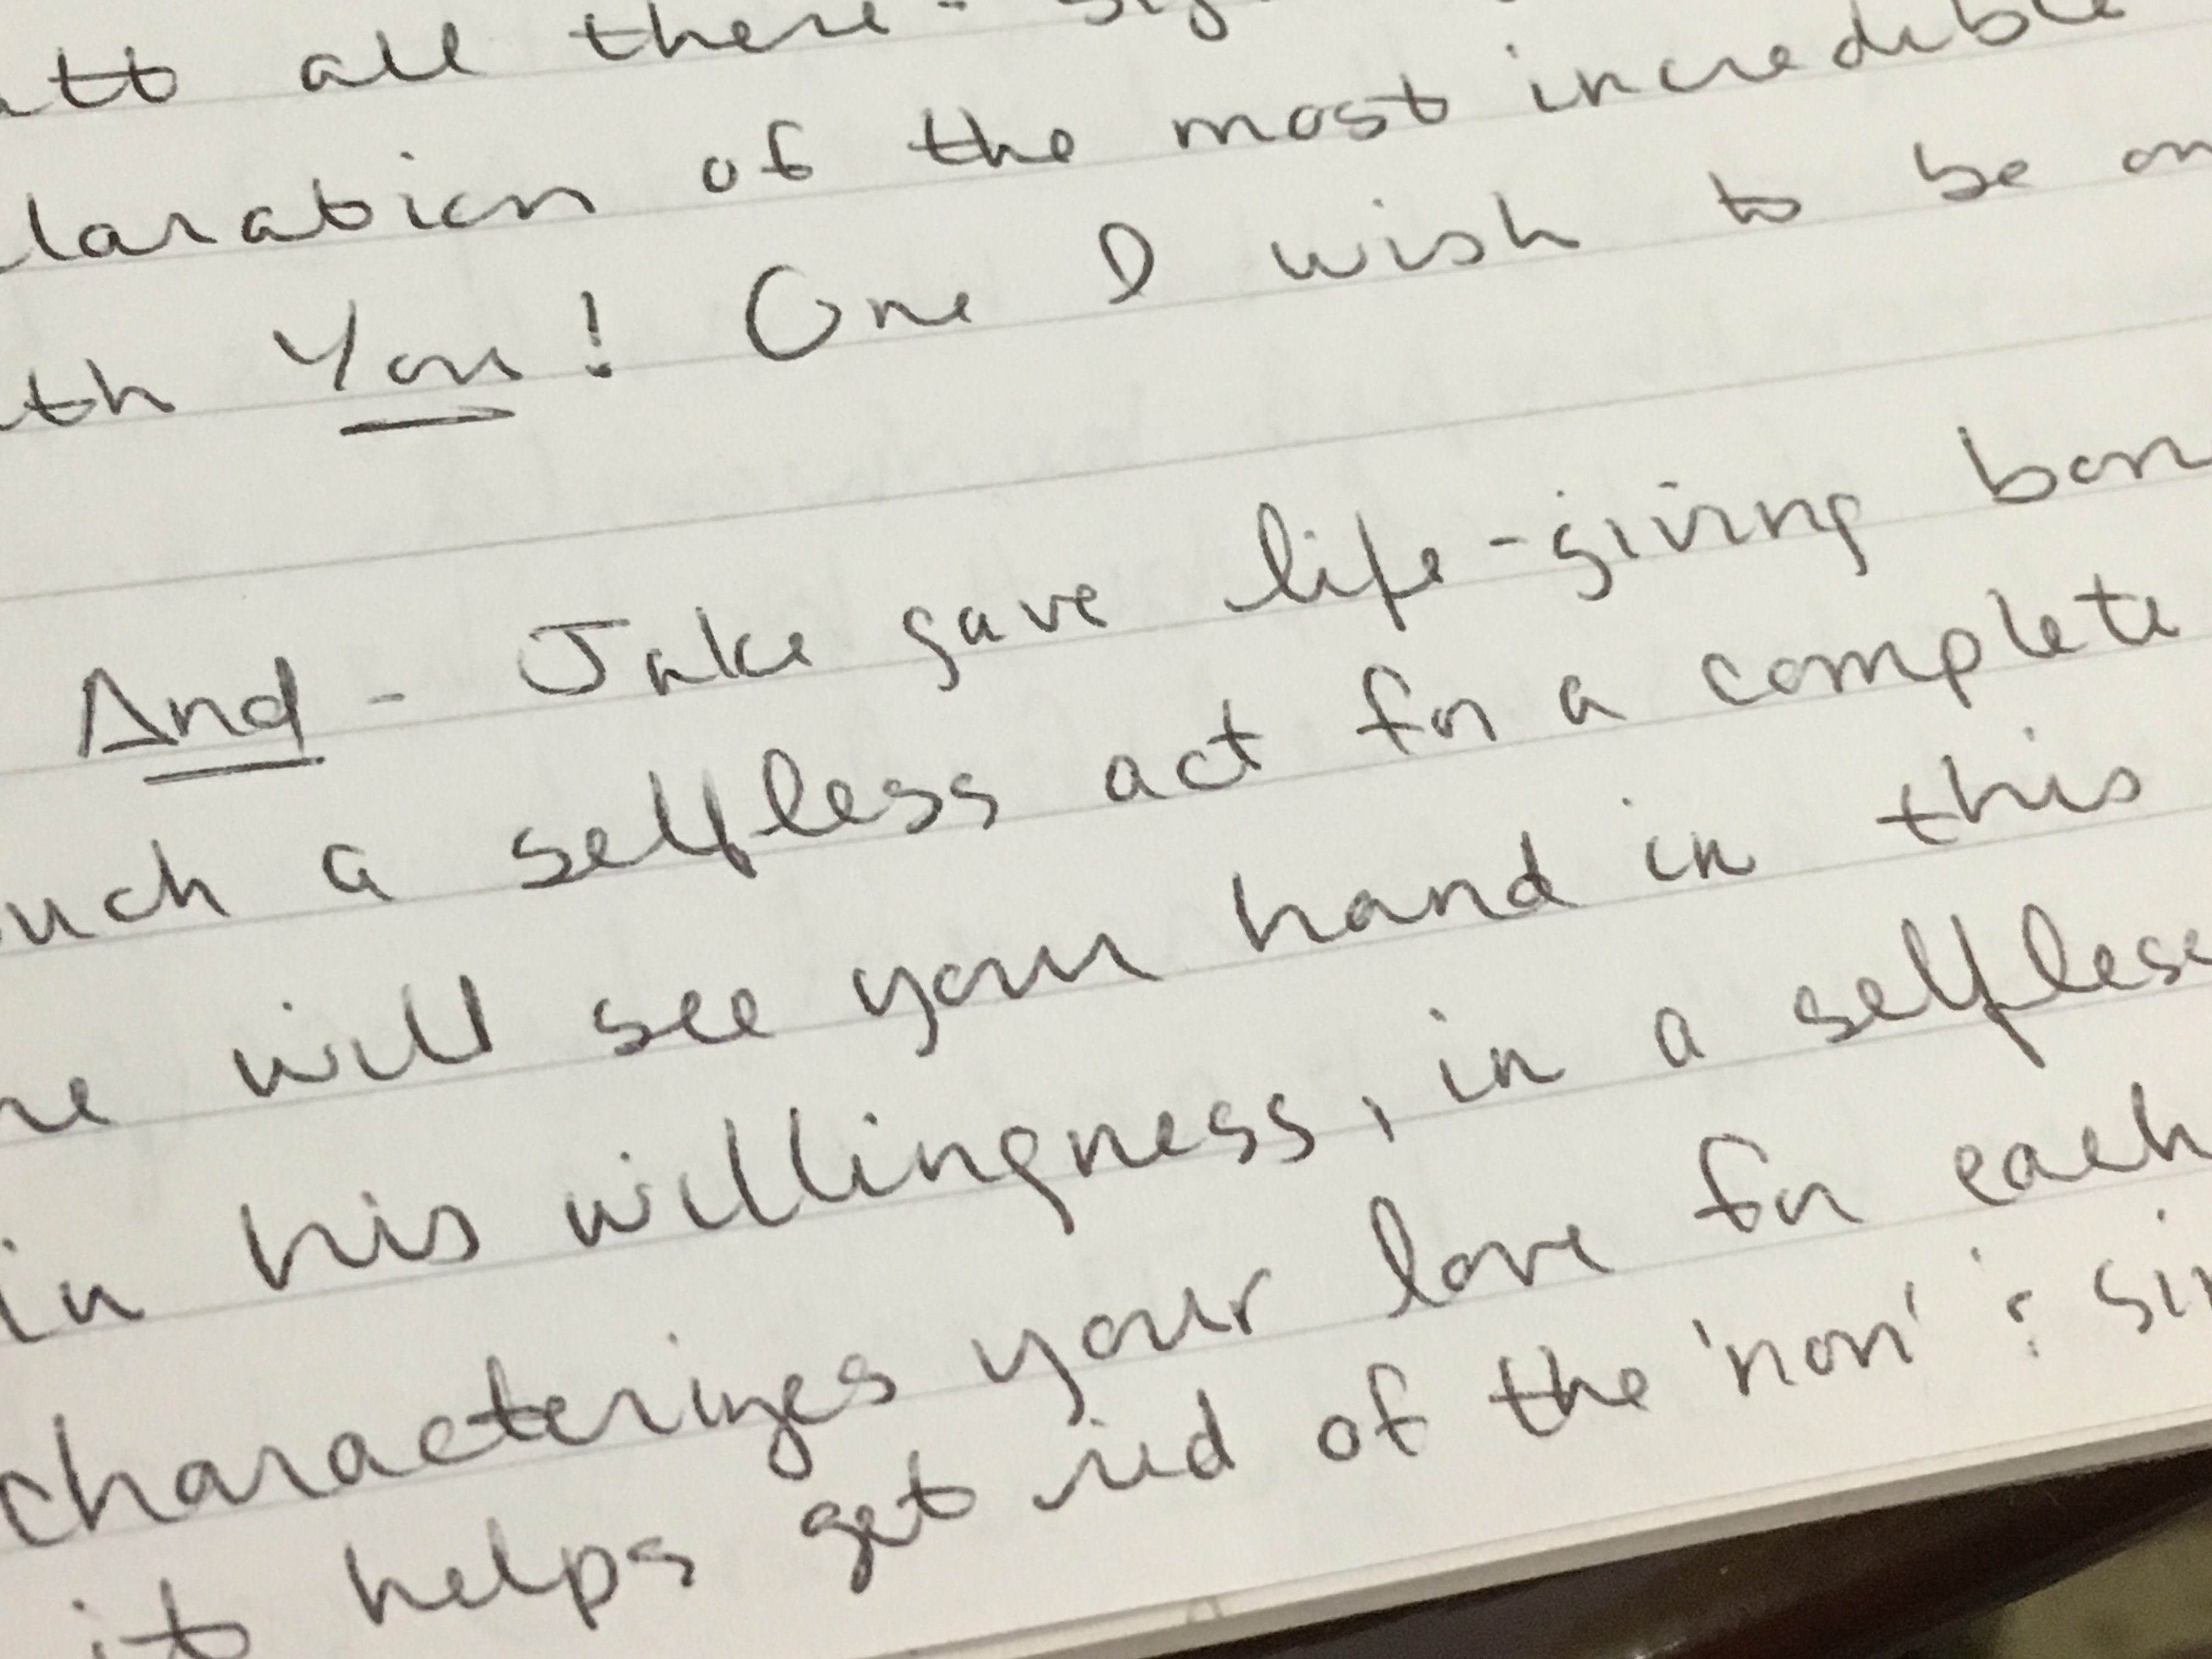 all there -
of the most incredible
You! One I wish to be
And - Jake gave life-giving
a selfless act for a complete
will see your hand in this
in his willingness, in a selfless
characterizes your love for each
it helps get rid of the 'non' :